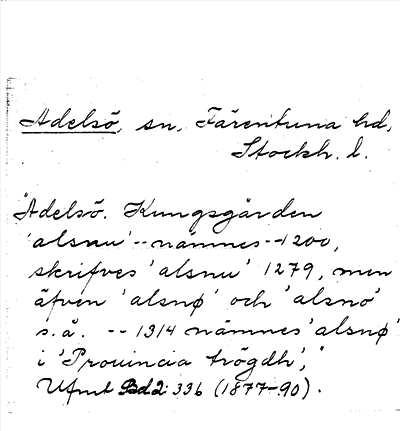 Adelsö, sn, Färentuna hd,
Stockh. l.
"Adelsö. Kungsgården
'alsnu' -- nämnes -- 1200,
skrifves 'alsnu' 1279, men
äfven 'alsnø' och 'alsno'
s.å. -- 1314 nämnes 'alsnø'
i 'Prouincia trögdh',"
Ufmt Bd2: 336 (1877-90).